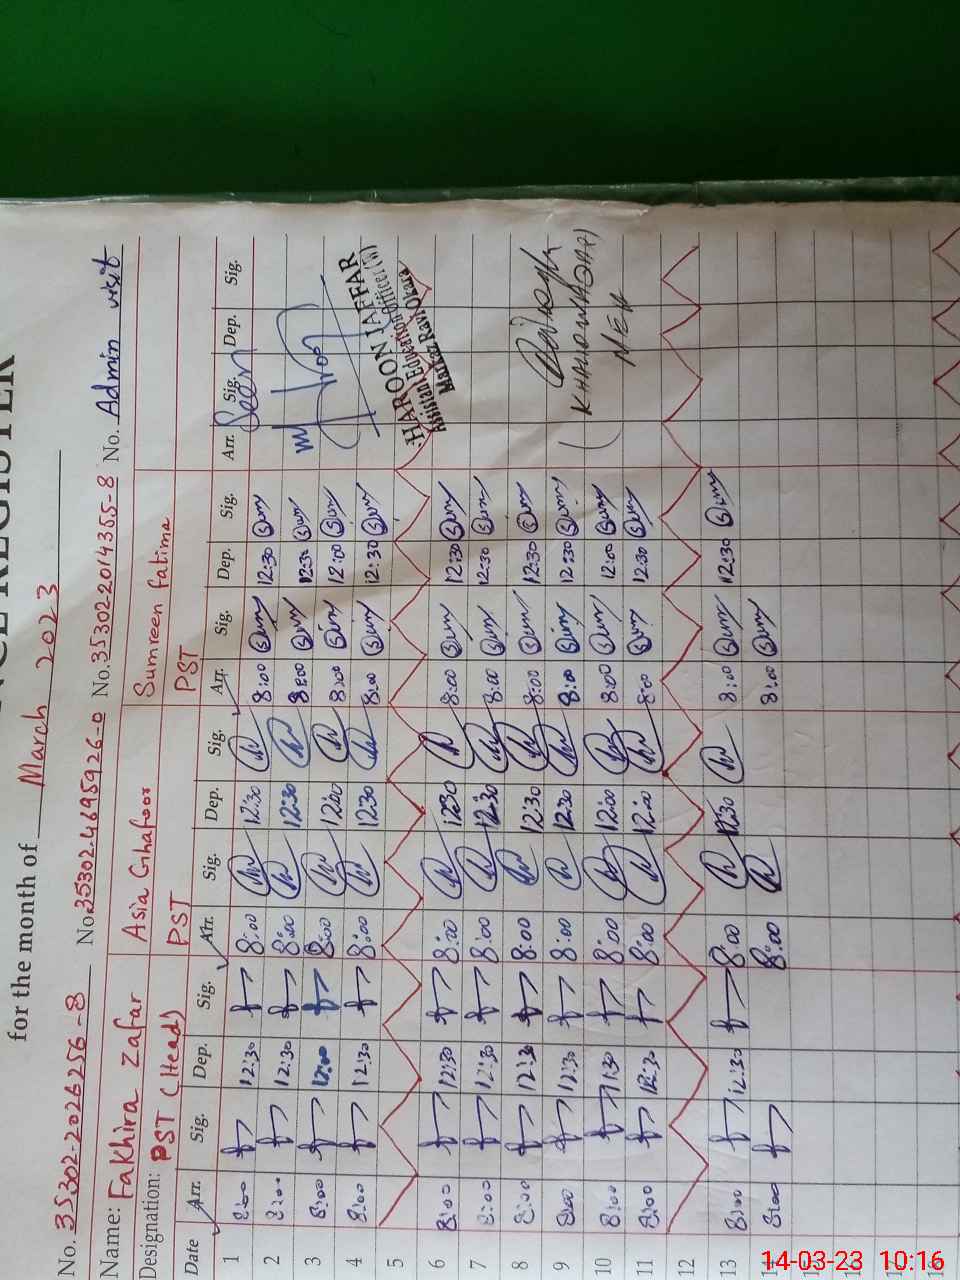 NCE REGISTER
for the month of March 2023
No. 35302-2026256-8 No. 35302-4695926-0 No. 35302-2014355-8 No. Admin visit
Name: Fakhira Zafar Asia Ghafoor Sumreen Fatima
Designation: PST (Head) PST PST
Date Arr. Sig. Dep. Sig. Arr. Sig. Dep. Sig. Arr. Sig. Dep. Sig. Arr. Sig. Dep. Sig.
1 8:00 12:30 8:00 12:30 8:00 12:30
2 8:00 12:30 8:00 12:30 8:00 12:30
3 8:00 12:00 8:00 12:00 8:00 12:00
4 8:00 12:30 8:00 12:30 8:00 12:30
HAROON JAFFAR
Assistan Education Officer (M)
Markaz Ravi Okara
5
6 8:00 12:30 8:00 12:30 8:00 12:30
7 8:00 12:30 8:00 12:30 8:00 12:30
8 8:00 12:30 8:00 12:30 8:00 12:30
9 8:00 12:30 8:00 12:30 8:00 12:30
10 8:00 11:30 8:00 12:00 8:00 12:00
11 8:00 12:30 8:00 12:00 8:00 12:30
12
13 8:00 12:30 8:00 12:30 8:00 12:30
14 8:00 8:00 8:00
15
16
17
18
14-03-23 10:16